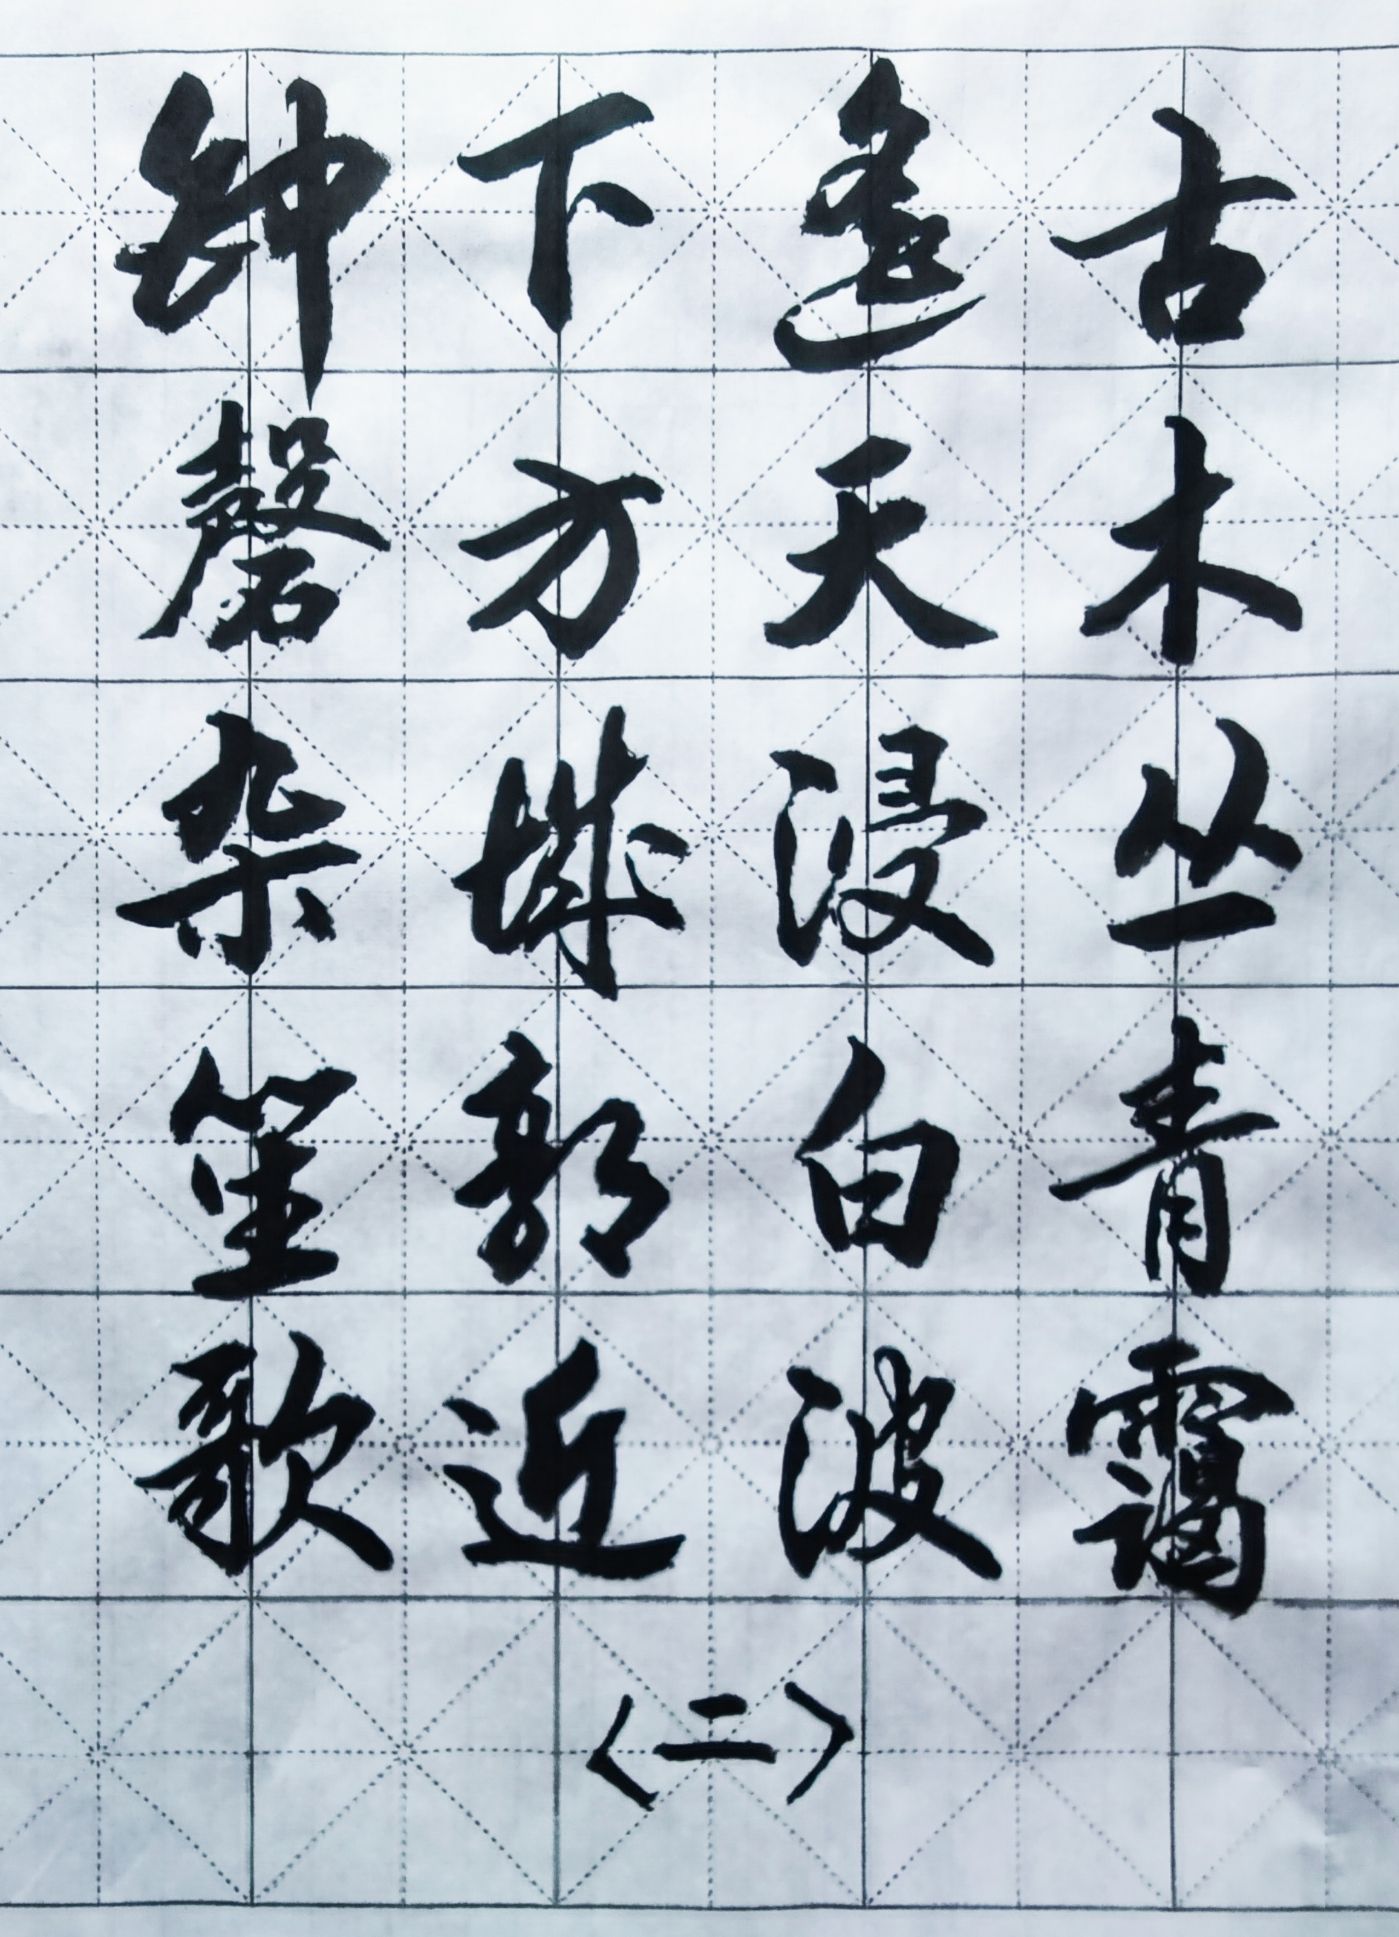 古木丛青霭
遥天浸白波
下方城郭近
钟磬杂笙歌
<二>